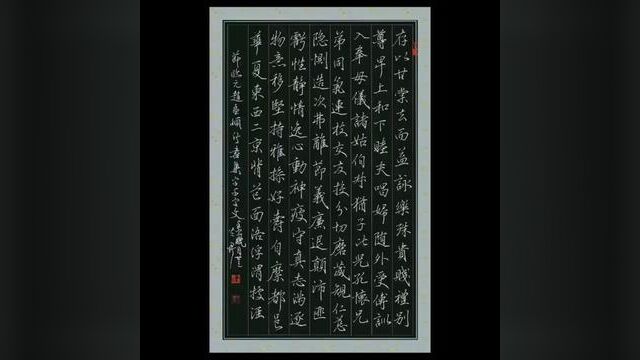 存以甘棠去而益詠樂殊貴賤禮別
尊卑上和下睦夫唱婦隨外受傅訓
入奉母儀諸姑伯叔猶子比兒孔懷兄
弟同氣連枝交友投分切磨箴規仁慈
隐惻造次弗離節義廉退顛沛匪
虧性靜情逸心動神疲守真志滿逐
物意移堅持雅操好爵自縻都邑
華夏東西二京背芒面洛浮渭據涇
節臨元趙孟頫行書集字千字文